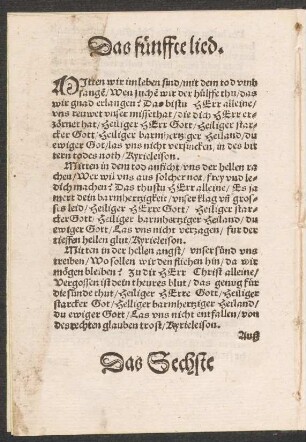 Das fünffte lied.
MItten wir im leben sind/mit dem tod vmb
fangẽ/Wen suchẽ wir der hülffe thu/das
wir gnad erlangen? Das bistu HErr alleine/
vns rewet vnser missethat/die dich HErr er-
zörnet hat/Heiliger HErr Gott/Heiliger star-
cker Gott/Heiliger barmhertziger Heiland/du
ewiger Got/las vns nicht versincken/in des bit
tern todes noth/Kyrieleison.
Mitten in dem tod anficht/vns der hellen ra
chen/Wer wil vns aus solcher not/frey vnd le-
dich machen? Das thustu HErr alleine/Es ja
mert dein barmhertzigkeit/vnser klag vñ gros-
ses leid/Heiliger HErre Gott/Heiliger star-
cker Gott/Heiliger barmhertziger Heiland/du
ewiger Gott/Las vns nicht verzagen/fur der
tieffen hellen glut/Kyrieleison.
Mitten in der hellen angst/vnser sünd vns
treiben/Wo sollen wir den fliehen hin/da wir
mögen bleiben? Zu dir HErr Christ alleine/
Vergossen ist dein theures blut/das genug für
die sünde thut/Heiliger HErre Gott/Heiliger
starcker Got/Heiliger barmhertziger Heiland/
du ewiger Gott/Las vns nicht entfallen/von
des rechten glauben trost/Kyrieleison.
Auß
Das Sechste